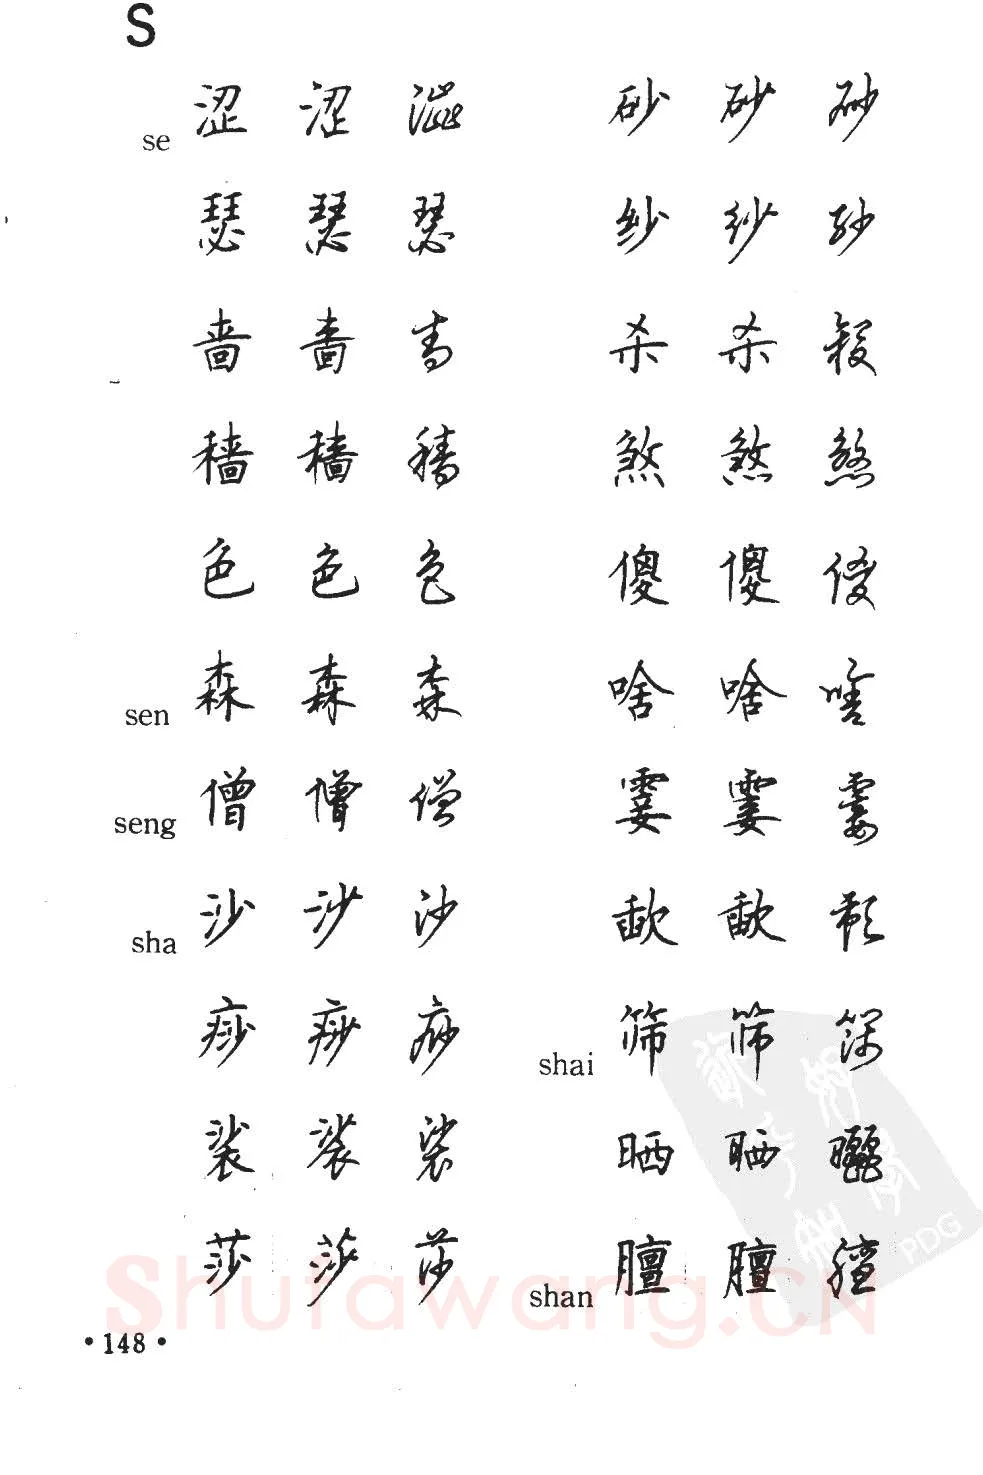 S
se 涩 涩 澁
瑟 瑟 瑟
啬 嗇 啬
穑 穡 穑
色 色 色
sen 森 森 森
seng 僧 僧 僧
sha 沙 沙 沙
痧 痧 痧
裟 裟 裟
莎 莎 莎
砂 砂 砂
纱 纱 纱
杀 杀 殺
煞 煞 煞
傻 傻 傻
啥 啥 啥
霎 霎 霎
歃 歃 歃
shai 筛 筛 筛
晒 晒 曬
shan 膻 膻 膻
·148·
Shufawang.CN
PDG